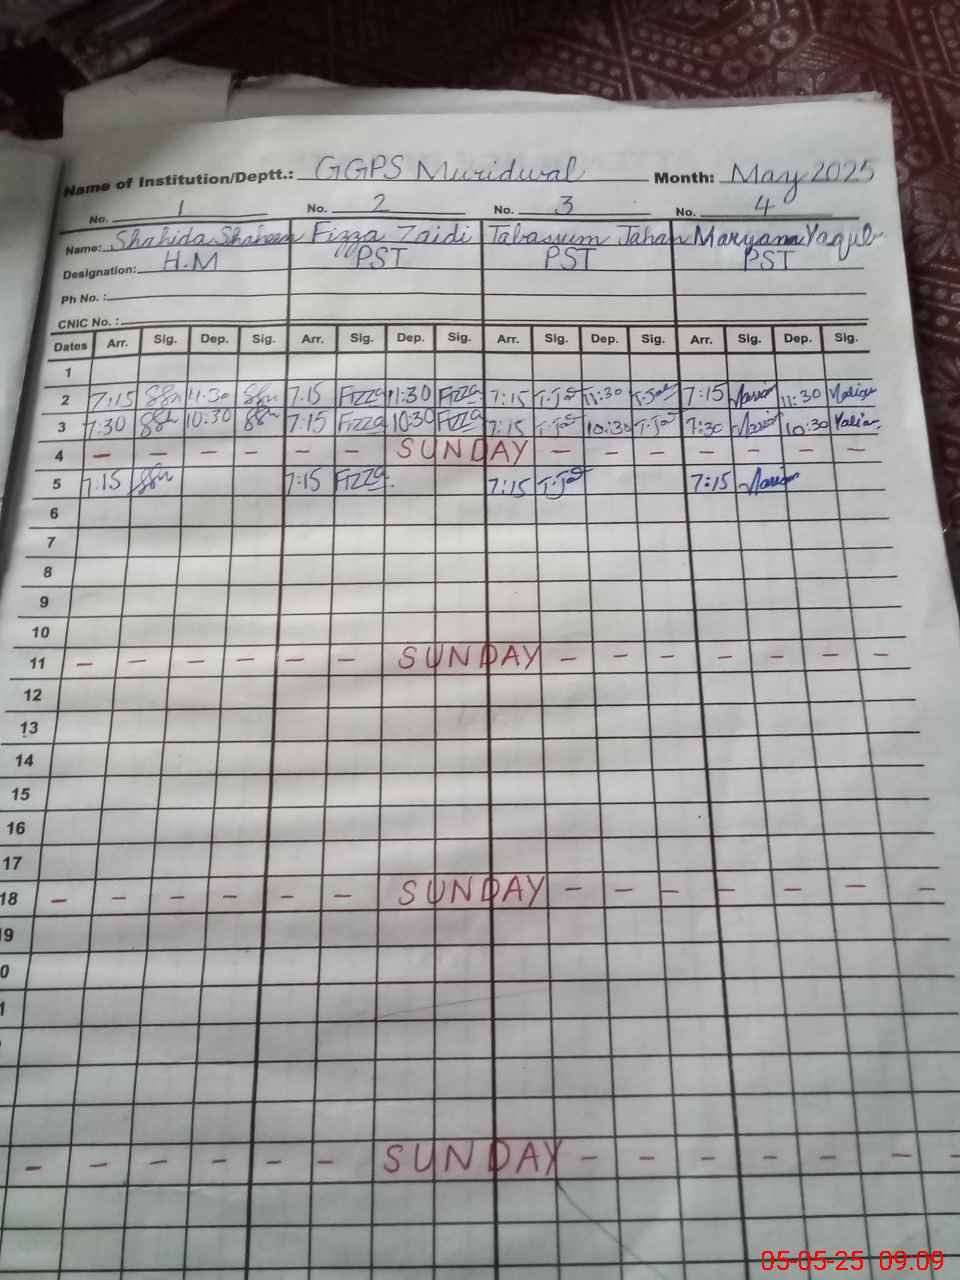 Name of Institution/Deptt.: GGPS Muridwal Month: May 2025
No. 1 No. 2 No. 3 No. 4
Name: Shahida Shaheen Fizza Zaidi Tabassum Jahan Maryam Yaqub
Designation: H.M PST PST PST
Ph No. :
CNIC No. :
Dates Arr. Sig. Dep. Sig. Arr. Sig. Dep. Sig. Arr. Sig. Dep. Sig. Arr. Sig. Dep. Sig.
1
2 7:15 11:30 7:15 Fizza 11:30 Fizza 7:15 11:30 7:15 11:30
3 7:30 10:30 7:15 Fizza 10:30 Fizza 7:15 10:30 7:30 10:30
4 - - - - - - SUNDAY - - - - - - -
5 7:15 7:15 Fizza 7:15 7:15
6
7
8
9
10
11 - - - - - - SUNDAY - - - - - - -
12
13
14
15
16
17
18 - - - - - - SUNDAY - - - - - - -
19
0
1
- - - - - - SUNDAY - - - - - - -
05-05-25 09:09